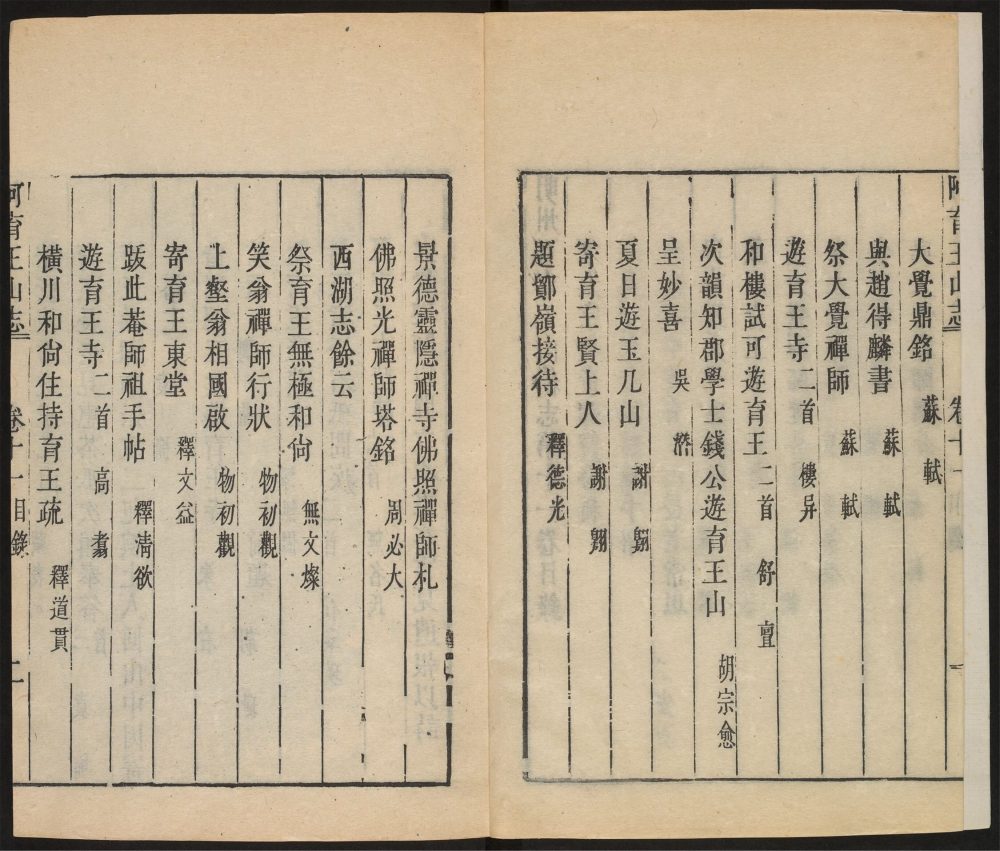 阿育王山志 卷十一
大覺鼎銘 蘇軾
與趙得麟書 蘇軾
祭大覺禪師 蘇軾
遊育王寺二首 樓异
和樓試可遊育王二首 舒亶
次韻知郡學士錢公遊育王山 胡宗愈
呈妙喜 吳
夏日遊玉几山 謝翱
寄育王賢上人 謝翱
題鄮嶺接待 釋德光
景德靈隱禪寺佛照禪師札
佛照光禪師塔銘 周必大
西湖志餘云
祭育王無極和尙 無文燦
笑翁禪師行狀 物初觀
上壑翁相國啟 物初觀
寄育王東堂 釋文益
跋此菴師祖手帖 釋淸欲
遊育王寺二首 高翥
橫川和尙住持育王疏 釋道貫
阿育王山志 卷十一目錄 二